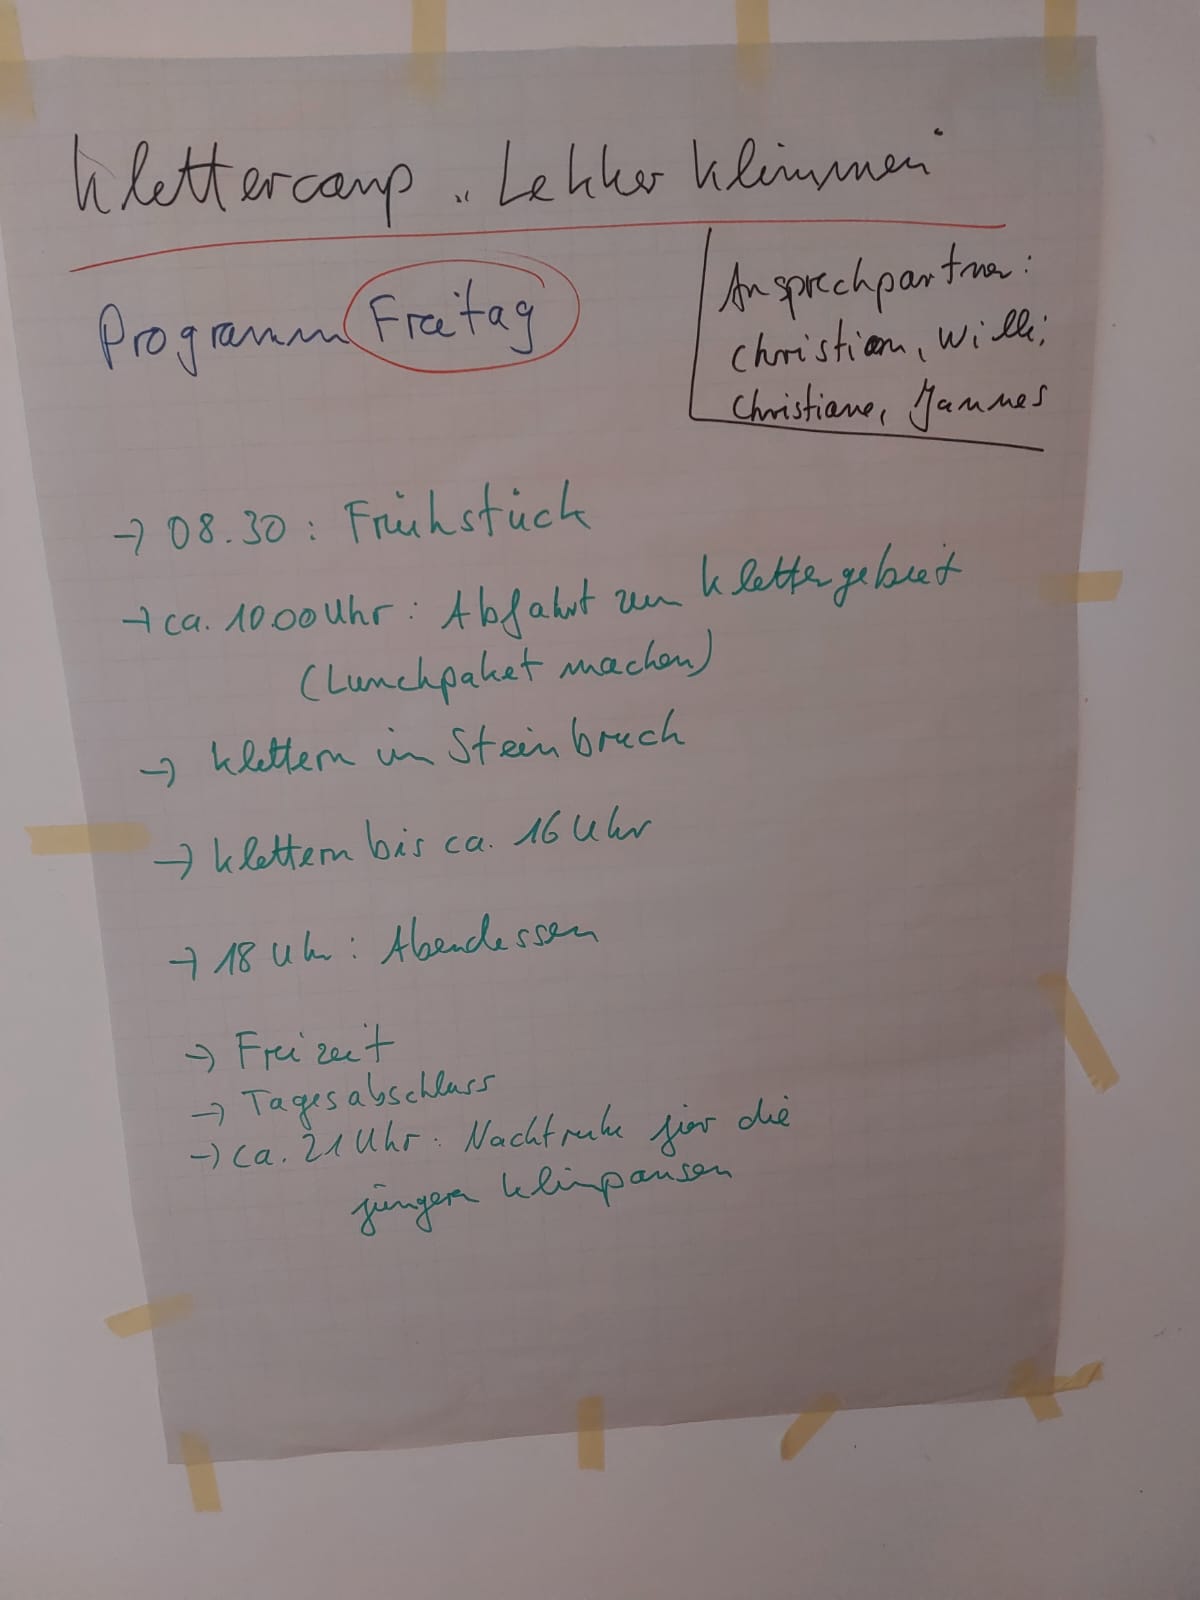 Klettercamp „Lekker Klimmen"
Programm Freitag
Ansprechpartner:
Christian, Willi,
Christiane, Jannes
→ 08.30: Frühstück
→ ca. 10.00 Uhr: Abfahrt zum Klettergebiet
(Lunchpaket machen)
→ Klettern im Steinbruch
→ Klettern bis ca. 16 Uhr
→ 18 Uhr: Abendessen
→ Freizeit
→ Tagesabschluss
→ ca. 21 Uhr: Nachtruhe für die
jüngern Klimpansen